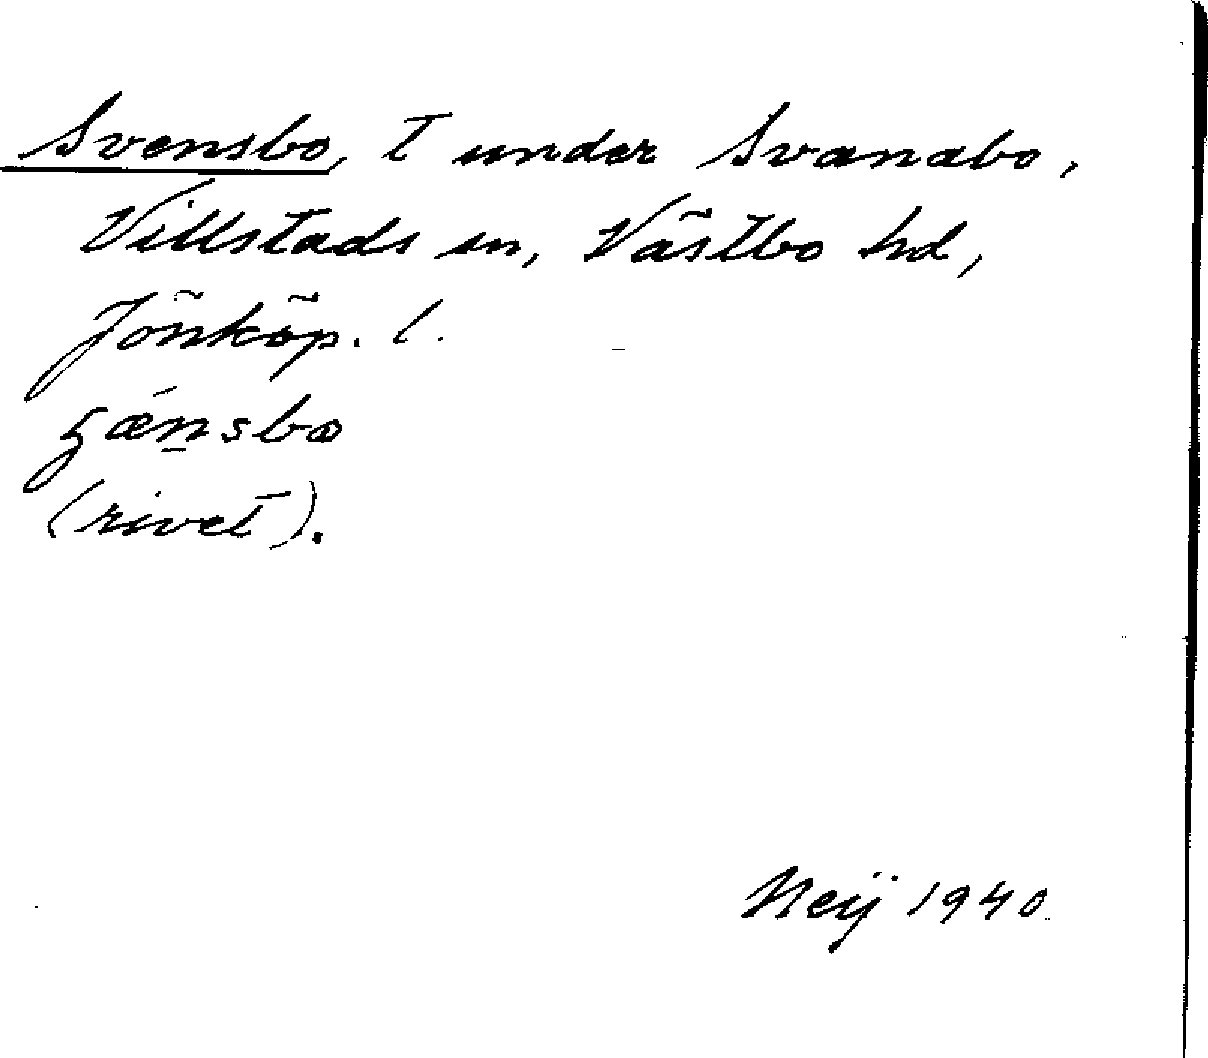 Svensbo, t under Svanabo,
Villstads sn, Västbo hd,
Jönköp. l.
(rivet).
Neij 1940